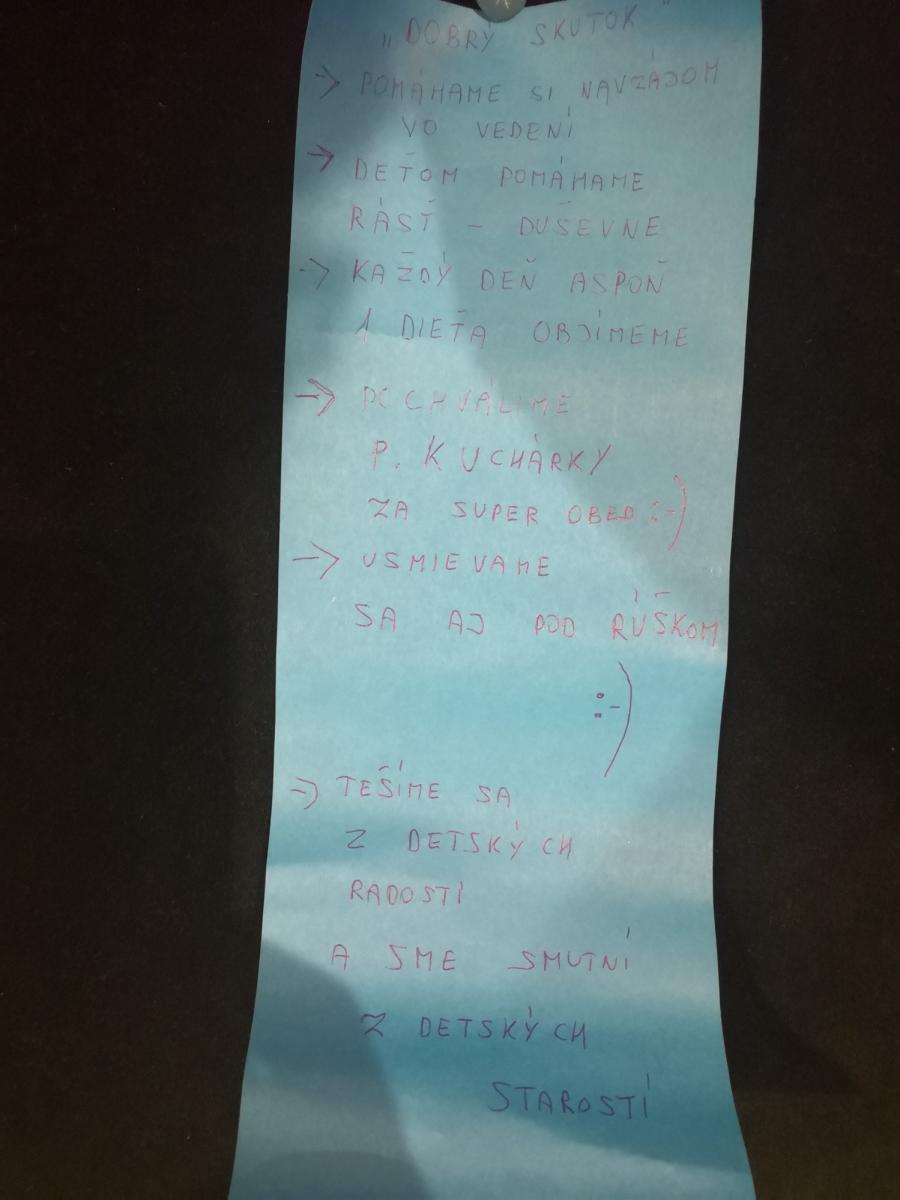 „DOBRÝ SKUTOK"
→ POMÁHAME SI NAVZÁJOM
VO VEDENÍ
→ DEŤOM POMÁHAME
RÁSŤ - DUŠEVNE
→ KAŽDÝ DEŇ ASPOŇ
1 DIEŤA OBJÍMEME
→ POCHVÁLIME
P. KUCHÁRKY
ZA SUPER OBED :-)
→ USMIEVAME
SA AJ POD RÚŠKOM
:-)
→ TEŠÍME SA
Z DETSKÝCH
RADOSTÍ
A SME SMUTNÍ
Z DETSKÝCH
STAROSTÍ